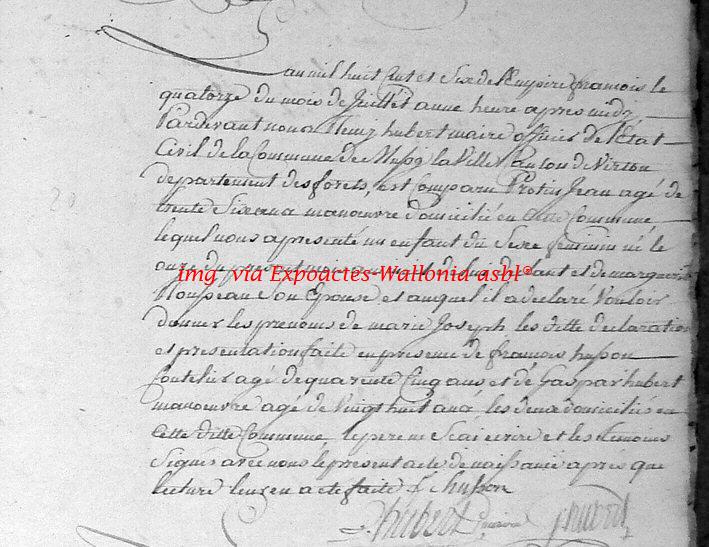 L'an mil huit Cent et Six de l'Empire francois le
quatorze du mois de Juillet a une heure apres midy
Pardevant nous hubert maire officier de l'Etat
Civil de la Commune de Mussy la Ville Canton de Virton
departement des forets, est Comparu Jean agé de
trente Six ans manoeuvre domicilié en Commune
lequel nous a presenté un enfant du Sexe feminin né le
onze du present mois de lui declarant et de marguerite
Img via Expoactes-Wallonia asbl®
Rousseau Son Epouse et auquel il a declaré Vouloir
donner les prenoms de marie Joseph les ditte declaration
et presentation faite en presence de francois husson
agé de quarente Cinq ans et de Gaspar hubert
manoeuvre agé de Vingt huit ans, les deux domiciliés en
Cette ditte Commune, le pere ne Scai ecrire et les temoins
Signés avec nous le present acte de naissance apres que
lecture leur en a eté faite f husson
hubert